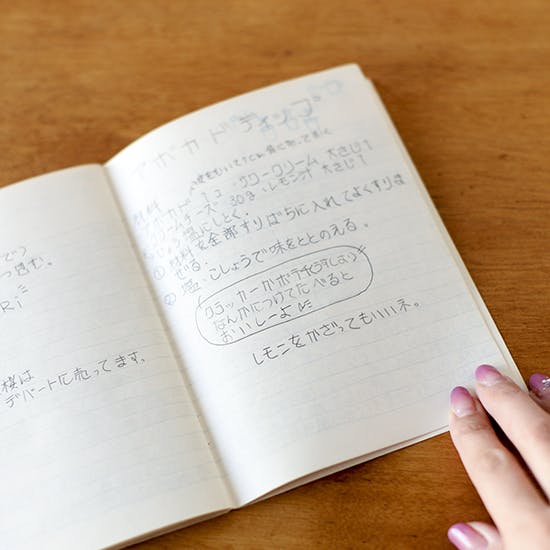 包む。
Ri
模は
デパートに売ってます。
アボカドディップ
材料
アボカド 1コ ・サワークリーム 大さじ1
クリームチーズ 30g ・レモン汁 大さじ1
じょう温にしとく。
① 材料を全部すりばちに入れてよくすりま
ぜる。
② 塩・こしょうで味をととのえる。
クラッカーかポテチ(うすしお)
なんかにつけてたべると
おいしーよ
レモンをかざってもいいネ。